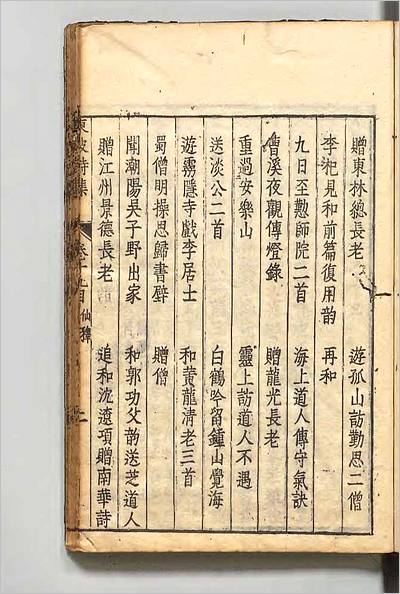 贈東林總長老　遊孤山訪勤思二僧
李杞見和前篇復用韻　再和
九日至懃師院二首　海上道人傳守氣訣
曹溪夜觀傳燈錄　贈龍光長老
重過安樂山　靈上訪道人不遇
送淡公二首　白鶴吟留鍾山覺海
遊霧隱寺戲李居士　和黄龍清老三首
蜀僧明操思歸書壁　贈僧
聞潮陽吳子野出家　和郭功父韵送芝道人
贈江州景德長老　追和沈遼項贈南華詩
東坡詩集　卷十九目　仙釋　二